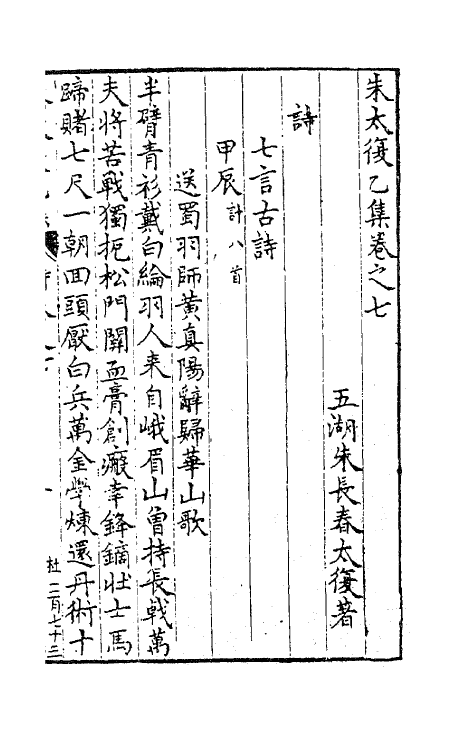 朱太復乙集卷之七
五湖朱長春太復著
詩
七言古詩
甲辰計八首
送蜀羽師黃真陽辭歸華山歌
半臂青衫戴白綸羽人来自峨眉山曾持長戟萬
夫將苦戰獨扼松門關血膏創瘢幸鋒鏑壯士馬
蹄賭七尺一朝回頭厭白兵萬金學煉還丹術十